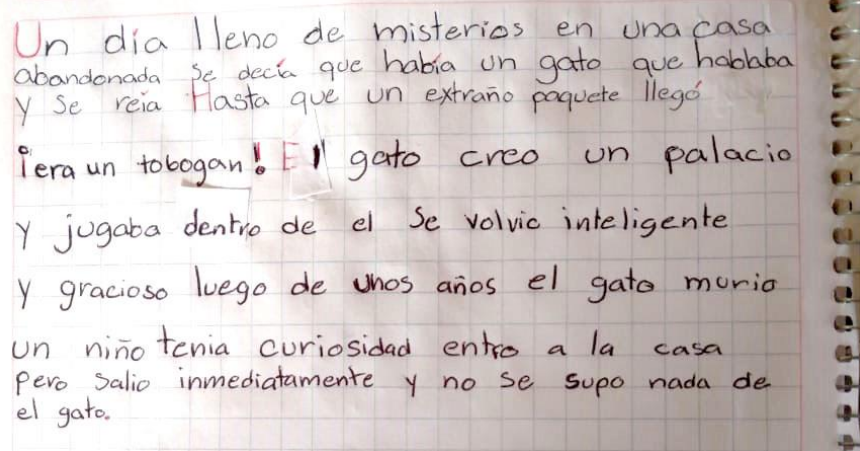 Un día lleno de misterios en una casa
abandonada se decía que había un gato que hablaba
y se reia Hasta que un extraño paquete llegó
¡era un tobogan! El gato creo un palacio
y jugaba dentro de el Se volvio inteligente
y gracioso luego de unos años el gato murio
un niño tenia curiosidad entro a la casa
pero salio inmediatamente y no se supo nada de
el gato.